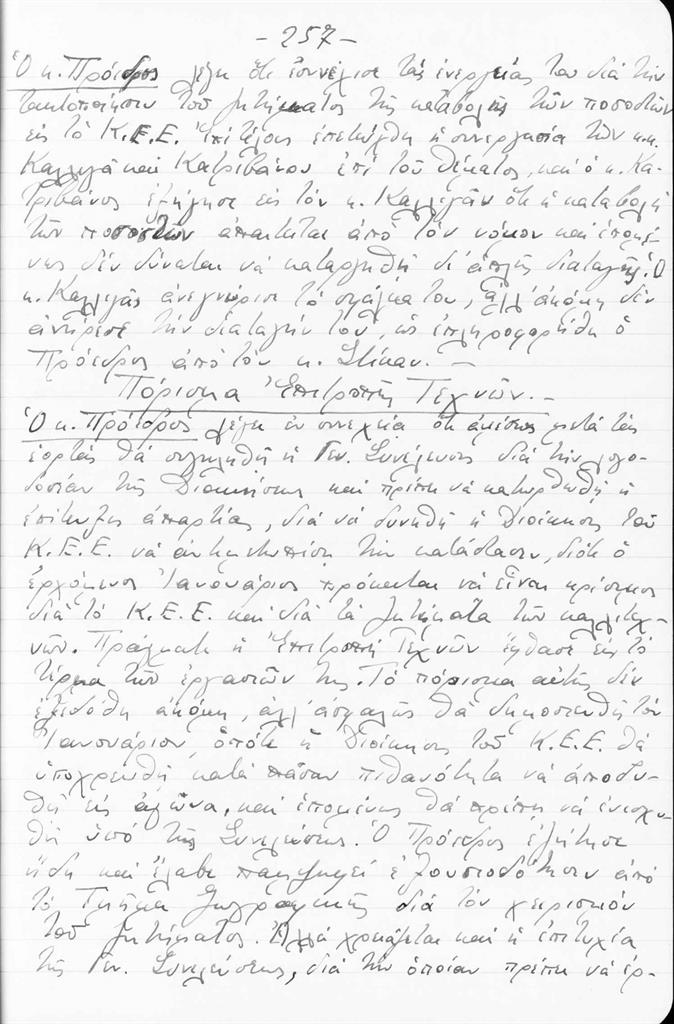 - 257 -
Ὁ κ. Πρόεδρος λέγει ὅτι ἐσυνέχισε τὰς ἐνεργείας του διὰ τὴν
τακτοποίησιν τοῦ ζητήματος τῆς καταβολῆς τῶν ποσοστῶν
εἰς τὸ Κ.Ε.Ε. Ἐπὶ τέλους ἐπετεύχθη ἡ συνεργασία τῶν κ.κ.
Καλλιγᾶ καὶ Κατριβάνου ἐπὶ τοῦ θέματος, καὶ ὁ κ. Κα-
τριβάνος ἐξήγησε εἰς τὸν κ. Καλλιγᾶν ὅτι ἡ καταβολὴ
τῶν ποσοστῶν ἀπαιτεῖται ἀπὸ τὸν νόμον καὶ ἑπομέ-
νως δὲν δύναται νὰ καταργηθῇ δι' ἁπλῆς διαταγῆς. Ὁ
κ. Καλλιγᾶς ἀνεγνώρισε τὸ σφάλμα του, ἀλλ' ἀκόμη δὲν
ἀνῄρεσε τὴν διαταγήν του, ὡς ἐπληροφορήθη ὁ
Πρόεδρος ἀπὸ τὸν κ.
Πόρισμα Ἐπιτροπῆς Τεχνῶν. -
Ὁ κ. Πρόεδρος λέγει ἐν συνεχείᾳ ὅτι ἀμέσως μετὰ τὰς
ἑορτὰς θὰ συγκληθῇ ἡ Γεν. Συνέλευσις διὰ τὴν λογο-
δοσίαν τῆς Διοικήσεως καὶ πρέπει νὰ κατορθωθῇ ἡ
ἐπίτευξις ἀπαρτίας, διὰ νὰ δυνηθῇ ἡ Διοίκησις τοῦ
Κ.Ε.Ε. νὰ ἀντιμετωπίσῃ τὴν κατάστασιν, διότι ὁ
ἐρχόμενος Ἰανουάριος πρόκειται νὰ εἶναι κρίσιμος
διὰ τὸ Κ.Ε.Ε. καὶ διὰ τὰ ζητήματα τῶν καλλιτεχ-
νῶν. Πράγματι ἡ Ἐπιτροπὴ Τεχνῶν ἔφθασε εἰς τὸ
τέρμα τῶν ἐργασιῶν της. Τὸ πόρισμα αὐτῆς δὲν
ἐξεδόθη ἀκόμη, ἀλλ' ἀσφαλῶς θὰ δημοσιευθῇ τὸν
Ἰανουάριον, ὁπότε ἡ Διοίκησις τοῦ Κ.Ε.Ε. θὰ
ὑποχρεωθῇ κατὰ πᾶσαν πιθανότητα νὰ ἀποδυ-
θῇ εἰς ἀγῶνα, καὶ ἑπομένως θὰ πρέπει νὰ ἐνισχυ-
θῇ ὑπὸ τῆς Συνελεύσεως. Ὁ Πρόεδρος ἐζήτησε
ἤδη καὶ ἔλαβε παμψηφεὶ ἐξουσιοδότησιν ἀπὸ
τὸ Τμῆμα Ζωγραφικῆς διὰ τὸν χειρισμὸν
τοῦ ζητήματος. Ἀλλὰ χρειάζεται καὶ ἡ ἐπιτυχία
τῆς Γεν. Συνελεύσεως, διὰ τὴν ὁποίαν πρέπει νὰ ἐρ-